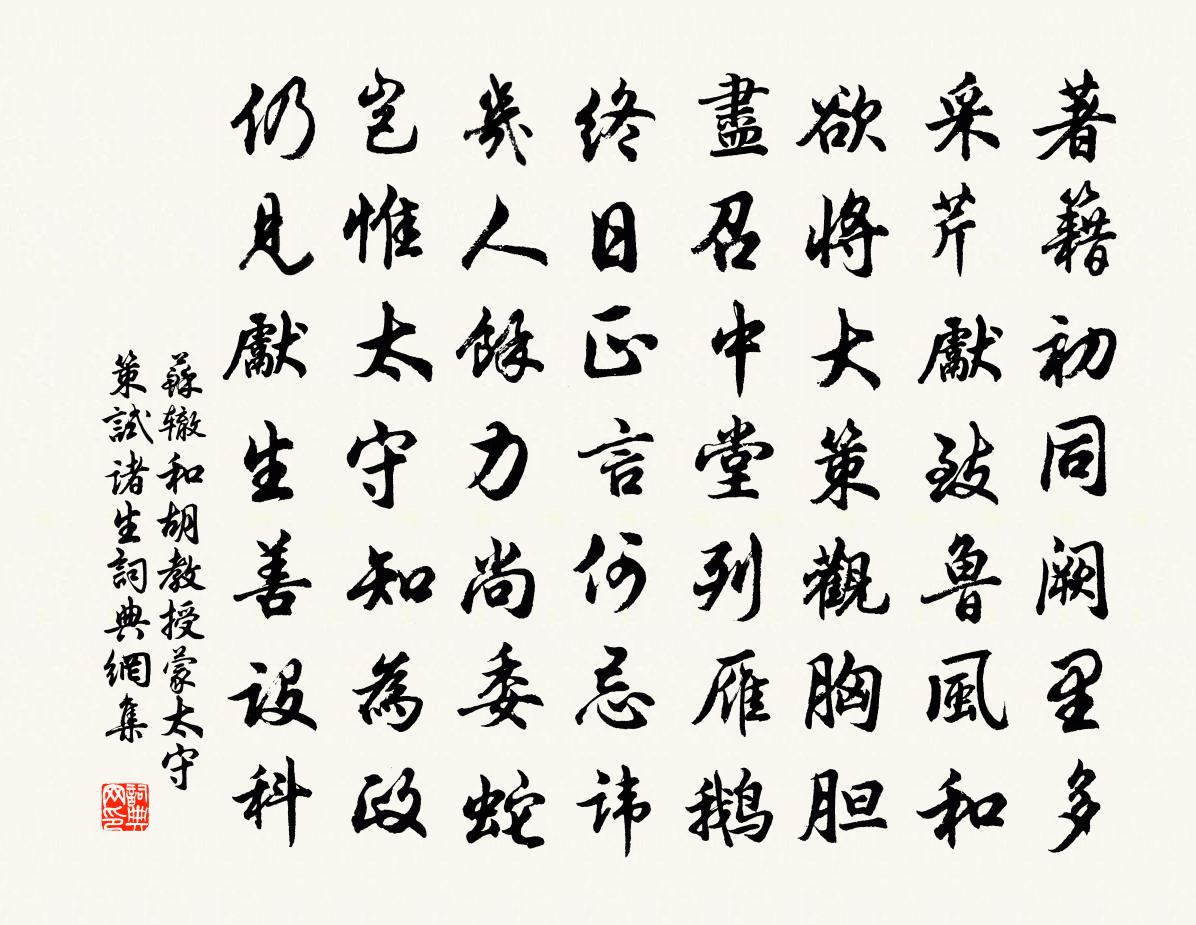 著籍初同阙里多
采芹獻致魯風和
欲將大策觀胸胆
盡召中堂列雁鹅
终日正言何忌讳
幾人餘力尚委蛇
岂惟太守知為政
仍見獻生善设科
蘇辙和胡教授蒙太守
策試诸生詞典網集
詞典网印